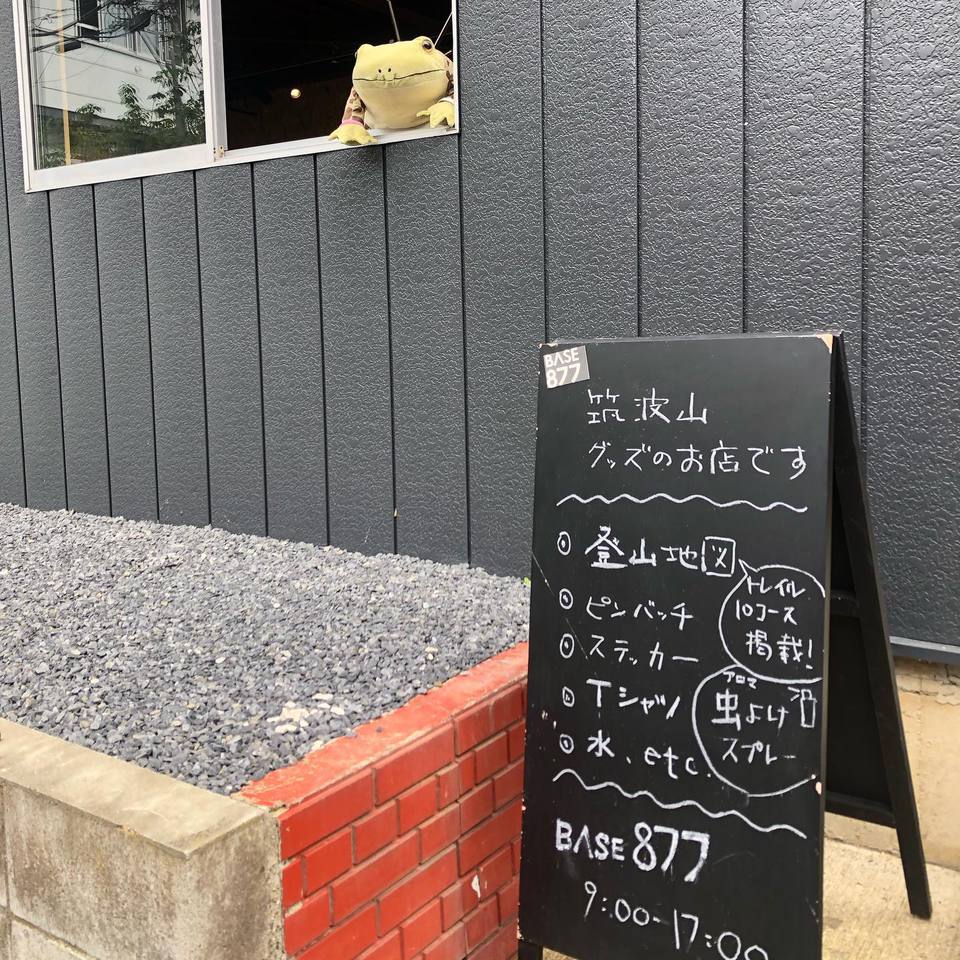 BASE
877
筑波山
グッズのお店です
◎ 登山地図
トレイル
10コース
掲載!
◎ ピンバッチ
◎ ステッカー
◎ Tシャツ
◎ 水、etc.
アロマ
虫よけ
スプレー
BASE 877
9:00-17:00